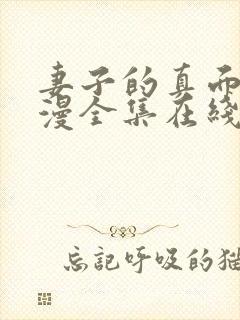 妻子的真而
漫全集在綫
忘記呼吸的猫